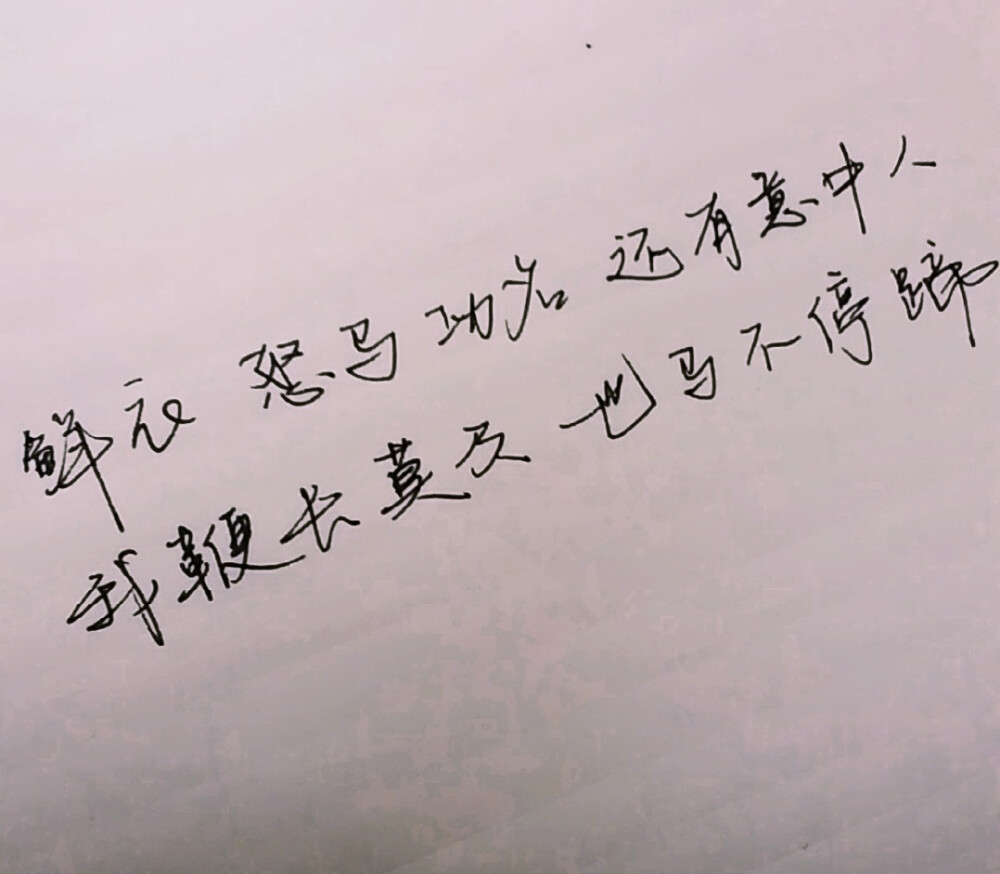 鲜衣怒马功名还有意中人
我鞭长莫及也马不停蹄